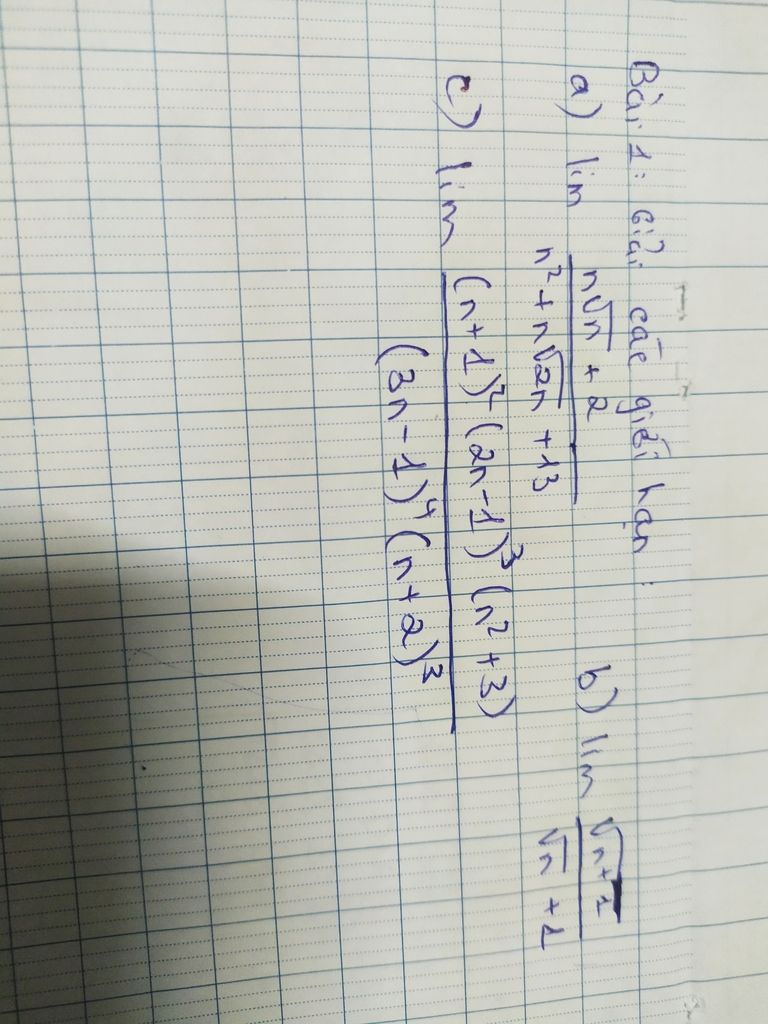 Bài 1: Giải các giới hạn:
a) lim (n√n + 2)/(n² + n√2n + 13) b) lim √(n+1)/(√n + 1)
c) lim ((n+1)² (2n-1)³ (n²+3))/((3n-1)⁴ (n+2)³)